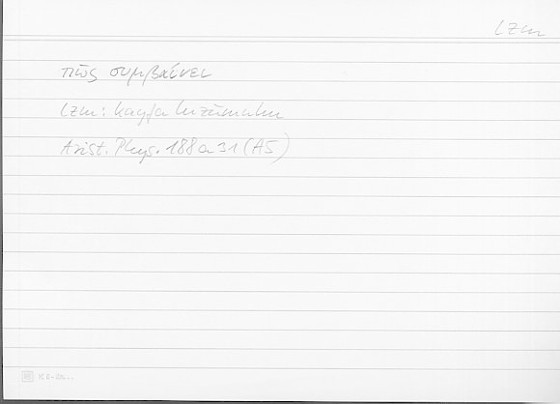 lzm
πῶς συμβαίνει
lzm: kayfa luzūmuhu
Arist. Phys. 188a31 (A5)